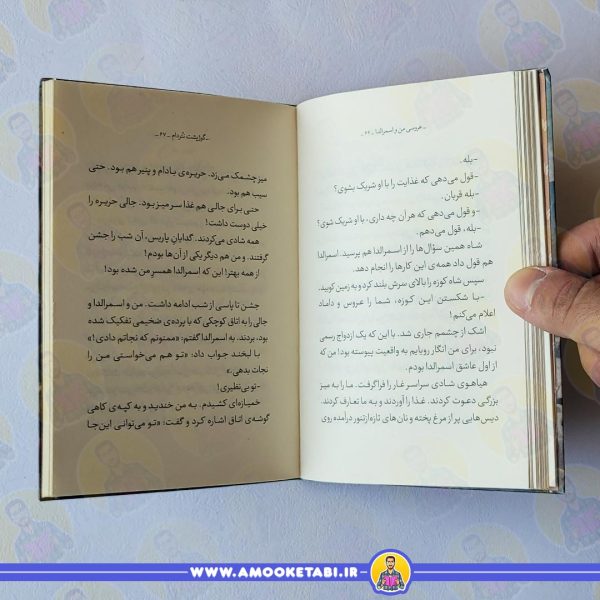 ـ عروسی من و اسمرالدا ـ ۶۶ ـ
-بله.
-قول می‌دهی که غذایت را با او شریک بشوی؟
-بله قربان.
-و قول می‌دهی که هر آن چه داری، با او شریک شوی؟
-بله، قول می‌دهم.
شاه همین سؤال‌ها را از اسمرالدا هم پرسید. اسمرالدا
هم قول داد همه‌ی این کارها را انجام دهد.
سپس شاه کوزه را بالای سرش بلند کرد و به زمین کوبید.
-با شکستن این کوزه، شما را عروس و داماد
اعلام می‌کنم!
اشک از چشمم جاری شد. با این که یک ازدواج رسمی
نبود، برای من انگار رویایم به واقعیت پیوسته بود! من که
از اول عاشق اسمرالدا بودم.
هیاهوی شادی سراسر غار را فرا گرفت. ما را به میز
بزرگی دعوت کردند. غذا را آوردند و به ما تعارف کردند.
دیس‌هایی پر از مرغ پخته و نان‌های تازه از تنور درآمده روی
ـ گوژپشت نتردام ـ ۶۷ ـ
میز چشمک می‌زد. حریره‌ی بادام و پنیر هم بود. حتی
سیب هم بود.
حتی برای جالی هم غذا سر میز بود. جالی حریره را
خیلی دوست داشت!
همه شادی می‌کردند. گدایان پاریس، آن شب را جشن
گرفتند. و من هم دیگر یکی از آن‌ها بودم!
از همه بهتر! این که اسمرالدا همسر من شده بود!
جشن تا پاسی از شب ادامه داشت. من و اسمرالدا و
جالی را به اتاق کوچکی که با پرده‌ی ضخیمی تفکیک شده
بود، بردند. به اسمرالدا گفتم: «ممنونم که نجاتم دادی!»
با لبخند جواب داد: «تو هم می‌خواستی من را
نجات بدهی.»
-تو بی‌نظیری!
خمیازه‌ای کشیدم. به من خندید و به کپه‌ی کاهی
گوشه‌ی اتاق اشاره کرد و گفت: «تو می‌توانی این‌جا
WWW.AMOOKETABI.IR